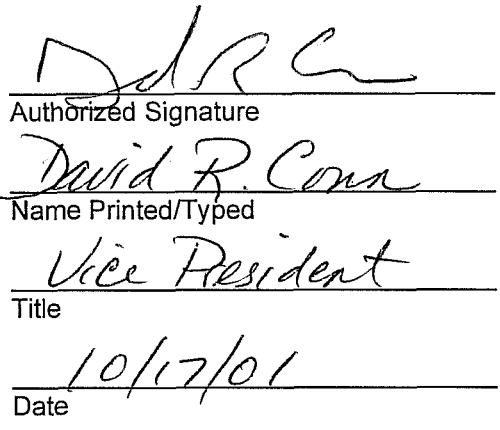 Authorized Signature
David R. Conn
Name Printed/Typed
Vice President
Title
10/17/01
Date